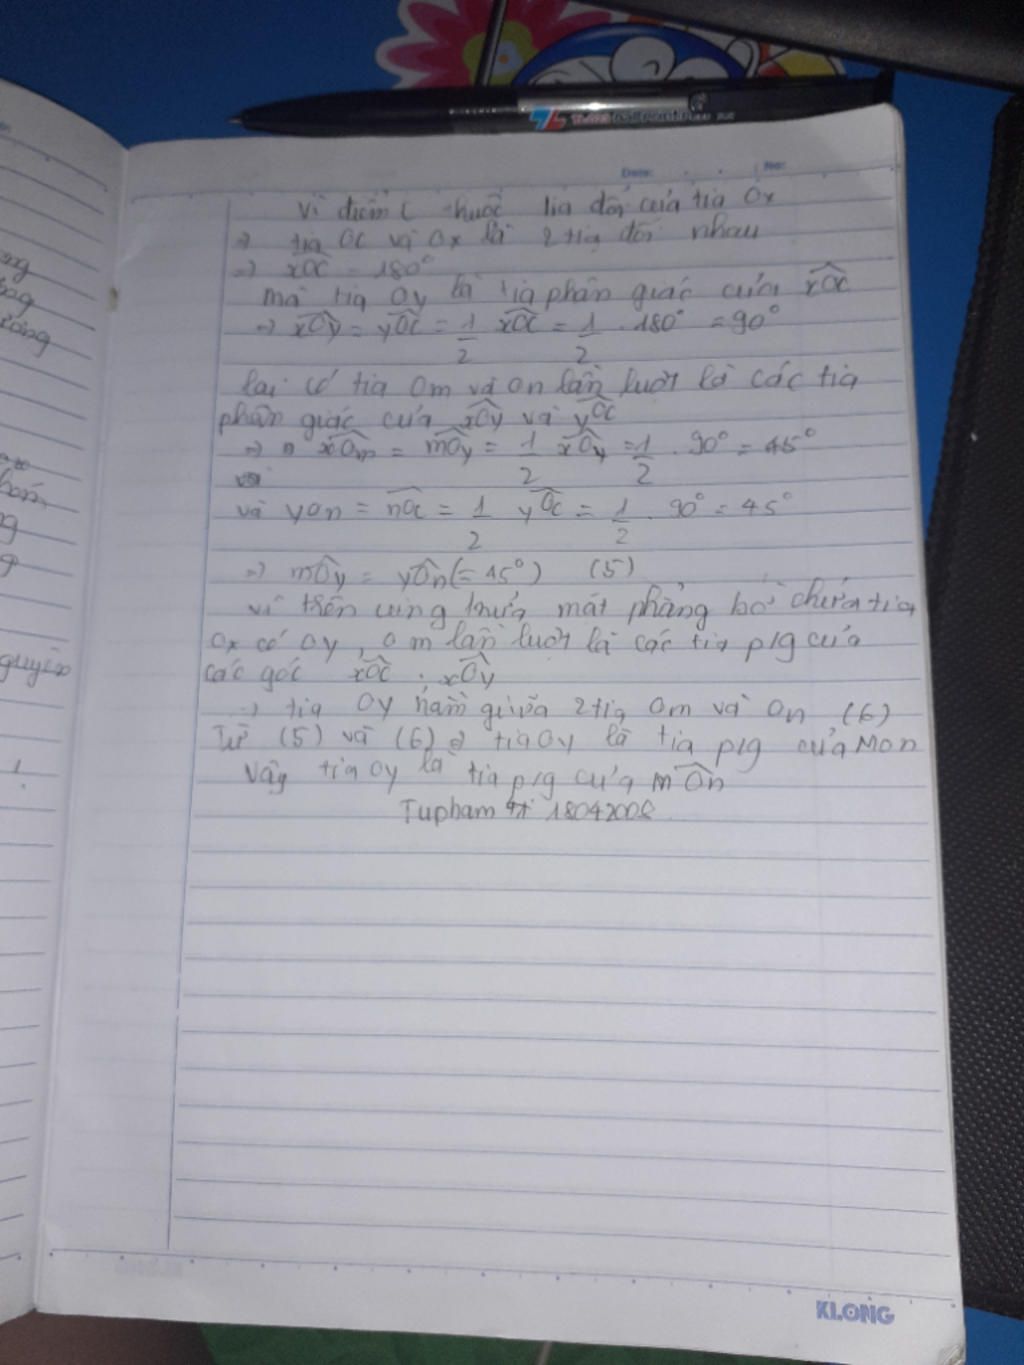 Date: No:
Vì điểm C thuộc tia đối của tia Ox
=> tia OC và Ox là 2 tia đối nhau
=> xOC = 180°
mà tia Oy là tia phân giác của xOC
=> xOy = yOC = 1/2 xOC = 1/2 . 180° = 90°
lại có tia Om và On lần lượt là các tia
phân giác của xOy và yOC
=> xOm = mOy = 1/2 xOy = 1/2 . 90° = 45°
và yOn = nOC = 1/2 yOC = 1/2 . 90° = 45°
=> mOy = yOn (= 45°) (5)
vì trên cùng nửa mặt phẳng bờ chứa tia
Ox có Oy, Om lần lượt là các tia p/g của
các góc xOC, xOy
=> tia Oy nằm giữa 2 tia Om và On (6)
Từ (5) và (6) => tia Oy là tia p/g của MOn
Vậy tia Oy là tia p/g của mOn
Tupham 18042008
quyển
KLONG